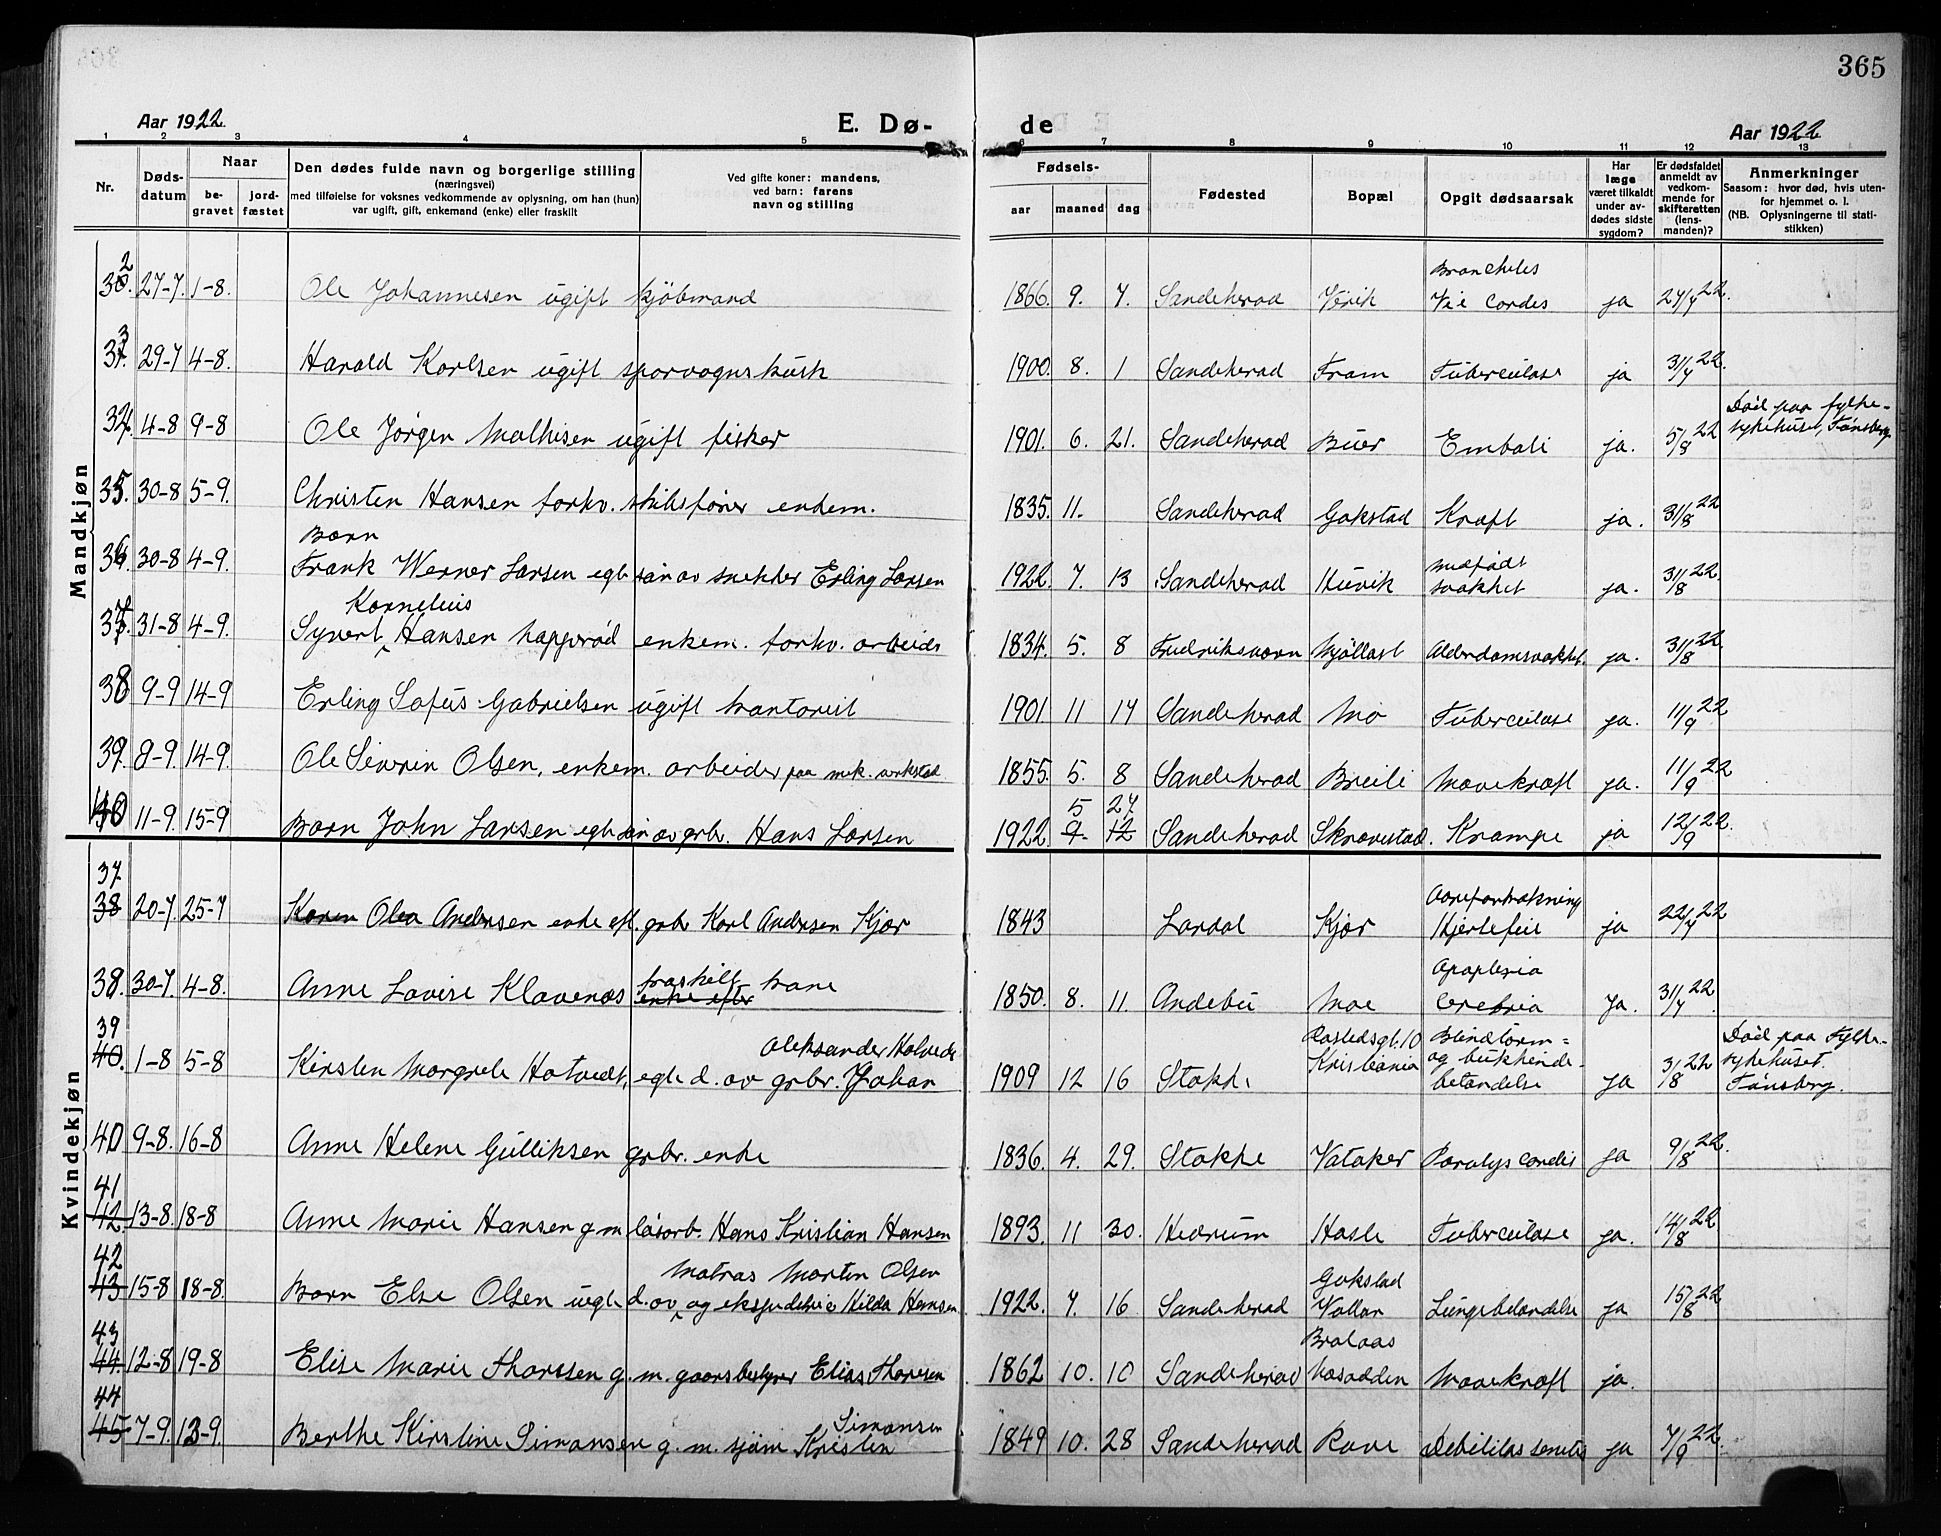 365
Aar 1922
E. Dø-
de
Aar 1922
1 2 3 4 5 6 7 8 9 10 11 12 13
Nr.
Døds-
datum
Naar
be-
gravet
jord-
fæstet
Den dødes fulde navn og borgerlige stilling
(næringsvei)
med tilføielse for voksnes vedkommende av oplysning, om han (hun)
var ugift, gift, enkemand (enke) eller fraskilt
Ved gifte koner: mandens,
ved barn: farens
navn og stilling
Fødsels-
aar
maaned
dag
Fødested
Bopæl
Opgit dødsaarsak
Har
læge
været tilkaldt
under av-
dødes sidste
sygdom?
Er dødsfaldet
anmeldt av
vedkom-
mende for
skifteretten
(lens-
manden)?
Anmerkninger
Saasom: hvor død, hvis uten-
for hjemmet o. l.
(NB. Oplysningerne til stati-
stikken)
Mandkjøn
32. 27-7. 1-8. Ole Johannesen ugift kjøbmand 1866. 9. 7. Sandeherad Vérik Vit. Cordis ja 27/7 22.
33. 29-7 4-8. Harald Karlsen ugift sporvognskusk 1900. 8. 1 Sandeherad Fram Tuberculose ja 31/7 22.
34. 4-8 9-8 Ole Jørgen Mathisen ugift fisker 1901. 6. 21. Sandeherad Buer Emboli ja. 5/8 22 Død paa fylke-
sykehuset, Tønsberg
35. 30-8 5-9. Christen Hansen forhv. skibsfører enkem. 1835. 11. Sandeherad Gokstad Kræft ja. 31/8 22
Barn
36. 30-8 4-9. Frank Werner Larsen egte søn av snekker Erling Larsen 1922. 7. 13 Sandeherad Huvik medfødt
svakhet ja. 31/8 22.
Kornelius
37. 31-8 4-9. Syvert Hansen Happørød enkem. forhv. arbeider 1834. 5. 8 Fredriksværn Mjøllost Alderdomssvakhet. ja. 31/8 22.
38 9-9 14-9 Erling Sofus Gabrielsen ugift kontorist 1901 11 14 Sandeherad Mo Tuberculose ja. 11/9 22
39. 8-9. 14-9. Ole Severin Olsen, enkem. arbeider paa mek. verksted 1855. 5. 8 Sandeherad Breili Mavekræft ja. 11/9 22
5 27
40 11-9. 15-9 Barn John Larsen egte søn av grbr. Hans Larsen 1922. 9. 12 Sandeherad Skravestad. Krampe ja 12/9 22.
Kvindekjøn
37
38 20-7 25-7 Karen Olea Andersen enke eft. grbr Karl Andersen Kjær 1843 Lardal Kjær Aareforkalkning
Hjertefeil ja 22/7 22
38. 30-7. 4-8. Anne Lovise Klavenæs fraskilt kone
enke efter 1850. 8. 11. Andebu Moe Apoplexia
Cerebria Ja. 31/7 22.
39
40. 1-8 5-8 Kirsten Margrete Hotvedt, egte d. av grbr. Johan
Aleksander Hotvedt 1909 12 16 Stokke
Kristiania Blindtarm=
og bukhinde-
betændelse ja 3/8 22 Død paa Fylke-
sykehuset.
Tønsberg.
40 9-8. 16-8 Anne Helene Gulliksen grbr. enke 1836. 4. 29. Stokke Vataker Paralys cordis ja 9/8 22.
41
42 13-8. 18-8 Anne Marie Hansen g m løsarb. Hans Kristian Hansen 1893. 11 30. Hedrum Hasle Tuberculose ja. 14/8 22
42
43 15-8 18-8. Barn Else Olsen uegte d. av og ekspeditrice Hilda Hansen
Matros Morten Olsen 1922. 7. 16 Sandeherad Gokstad
Vallar Lungebetændelse ja 15/8 22
43
44. 12-8 19-8 Elise Marie Thorssen g. m. gaardsbestyrer Elias Thoresen 1862 10. 10 Sandeherad Bralaas
Mavekræft ja.
44
45 7-9. 13-9. Berthe Kirstine Simonsen g. m. sjøm Kristen
Simonsen 1849 10. 28 Sandeherad Rave Debilitas senilis ja 7/9 22.